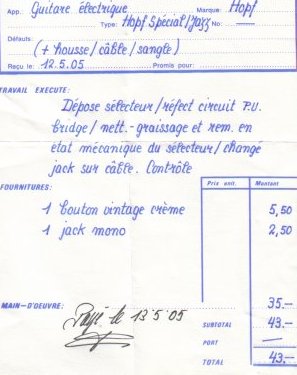 App. Guitare électrique Marque: Hopf
Type: Hopf Spécial/Jazz No:
Défauts:
(+ housse/câble/sangle)
Reçu le: 12.5.05 Promis pour:
TRAVAIL EXECUTE:
Dépose sélecteur/réfect circuit P.U.
bridge/nett.-graissage et rem. en
état mécanique du sélecteur/changé
jack sur câble. Contrôle
FOURNITURES: Prix unit. Montant
1 bouton vintage crème 5,50
1 jack mono 2,50
MAIN-D'OEUVRE: 35.—
Payé le 13 5 05
SUBTOTAL 43.—
PORT —
TOTAL 43.—